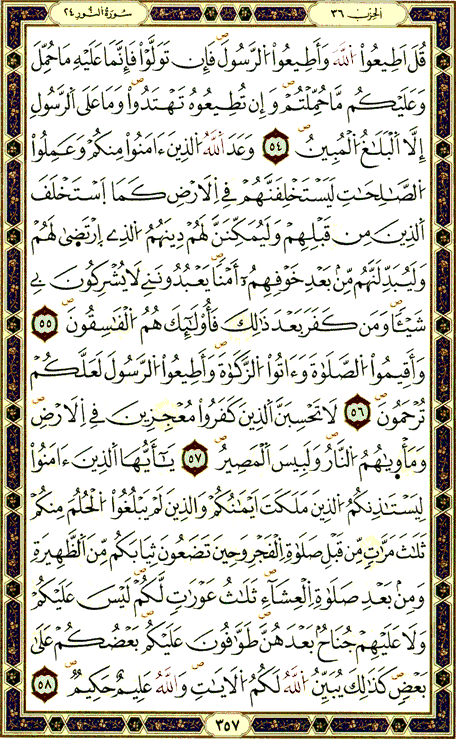 الحزب ٣٦
سُورَةُ النُّورِ ٢٤
قُلَ اَطِيعُواْ اللَّهَ وَأَطِيعُواْ الرَّسُولَ فَإِن تَوَلَّوْاْ فَإِنَّمَا عَلَيْهِ مَا حُمِّلَ
وَعَلَيْكُم مَّا حُمِّلْتُمْ وَإِن تُطِيعُوهُ تَهْتَدُواْ وَمَا عَلَى الرَّسُولِ
إِلَّا الْبَلَٰغُ الْمُبِينُ ٥٤ وَعَدَ اللَّهُ الذِينَ ءَامَنُواْ مِنكُمْ وَعَمِلُواْ
الصَّٰلِحَٰتِ لَيَسْتَخْلِفَنَّهُمْ فِي اِلَارْضِ كَمَا اَسْتَخْلَفَ
الذِينَ مِن قَبْلِهِمْ وَلَيُمَكِّنَنَّ لَهُمْ دِينَهُمُ الذِے اِرْتَضَىٰ لَهُمْ
وَلَيُبَدِّلَنَّهُم مِّنۢ بَعْدِ خَوْفِهِمُۥ أَمْناً يَعْبُدُونَنِے لَا يُشْرِكُونَ بِے
شَيْـٔاً وَمَن كَفَرَ بَعْدَ ذَٰلِكَ فَأُوْلَٰٓئِكَ هُمُ الْفَٰسِقُونَ ٥٥
وَأَقِيمُواْ الصَّلَوٰةَ وَءَاتُواْ الزَّكَوٰةَ وَأَطِيعُواْ الرَّسُولَ لَعَلَّكُمْ
تُرْحَمُونَ ٥٦ لَا تَحْسِبَنَّ الذِينَ كَفَرُواْ مُعْجِزِينَ فِي اِلَارْضِ
وَمَأْوِيٰهُمُ النَّارُ وَلَبِيسَ الْمَصِيرُ ٥٧ يَٰٓأَيُّهَا الذِينَ ءَامَنُواْ
لِيَسْتَٰذِنكُمُ الذِينَ مَلَكَتَ اَيْمَٰنُكُمْ وَالذِينَ لَمْ يَبْلُغُواْ الْحُلُمَ مِنكُمْ
ثَلَٰثَ مَرَّٰتٍ مِّن قَبْلِ صَلَوٰةِ الْفَجْرِ وَحِينَ تَضَعُونَ ثِيَابَكُم مِّنَ الظَّهِيرَةِ
وَمِنۢ بَعْدِ صَلَوٰةِ الْعِشَآءِ ثَلَٰثُ عَوْرَٰتٍ لَّكُمْ لَيْسَ عَلَيْكُمْ
وَلَا عَلَيْهِمْ جُنَاحٌۢ بَعْدَهُنَّ طَوَّٰفُونَ عَلَيْكُم بَعْضُكُمْ عَلَىٰ
بَعْضٍ كَذَٰلِكَ يُبَيِّنُ اللَّهُ لَكُمُ الَايَٰتِ وَاللَّهُ عَلِيمٌ حَكِيمٌ ٥٨
٣٥٧